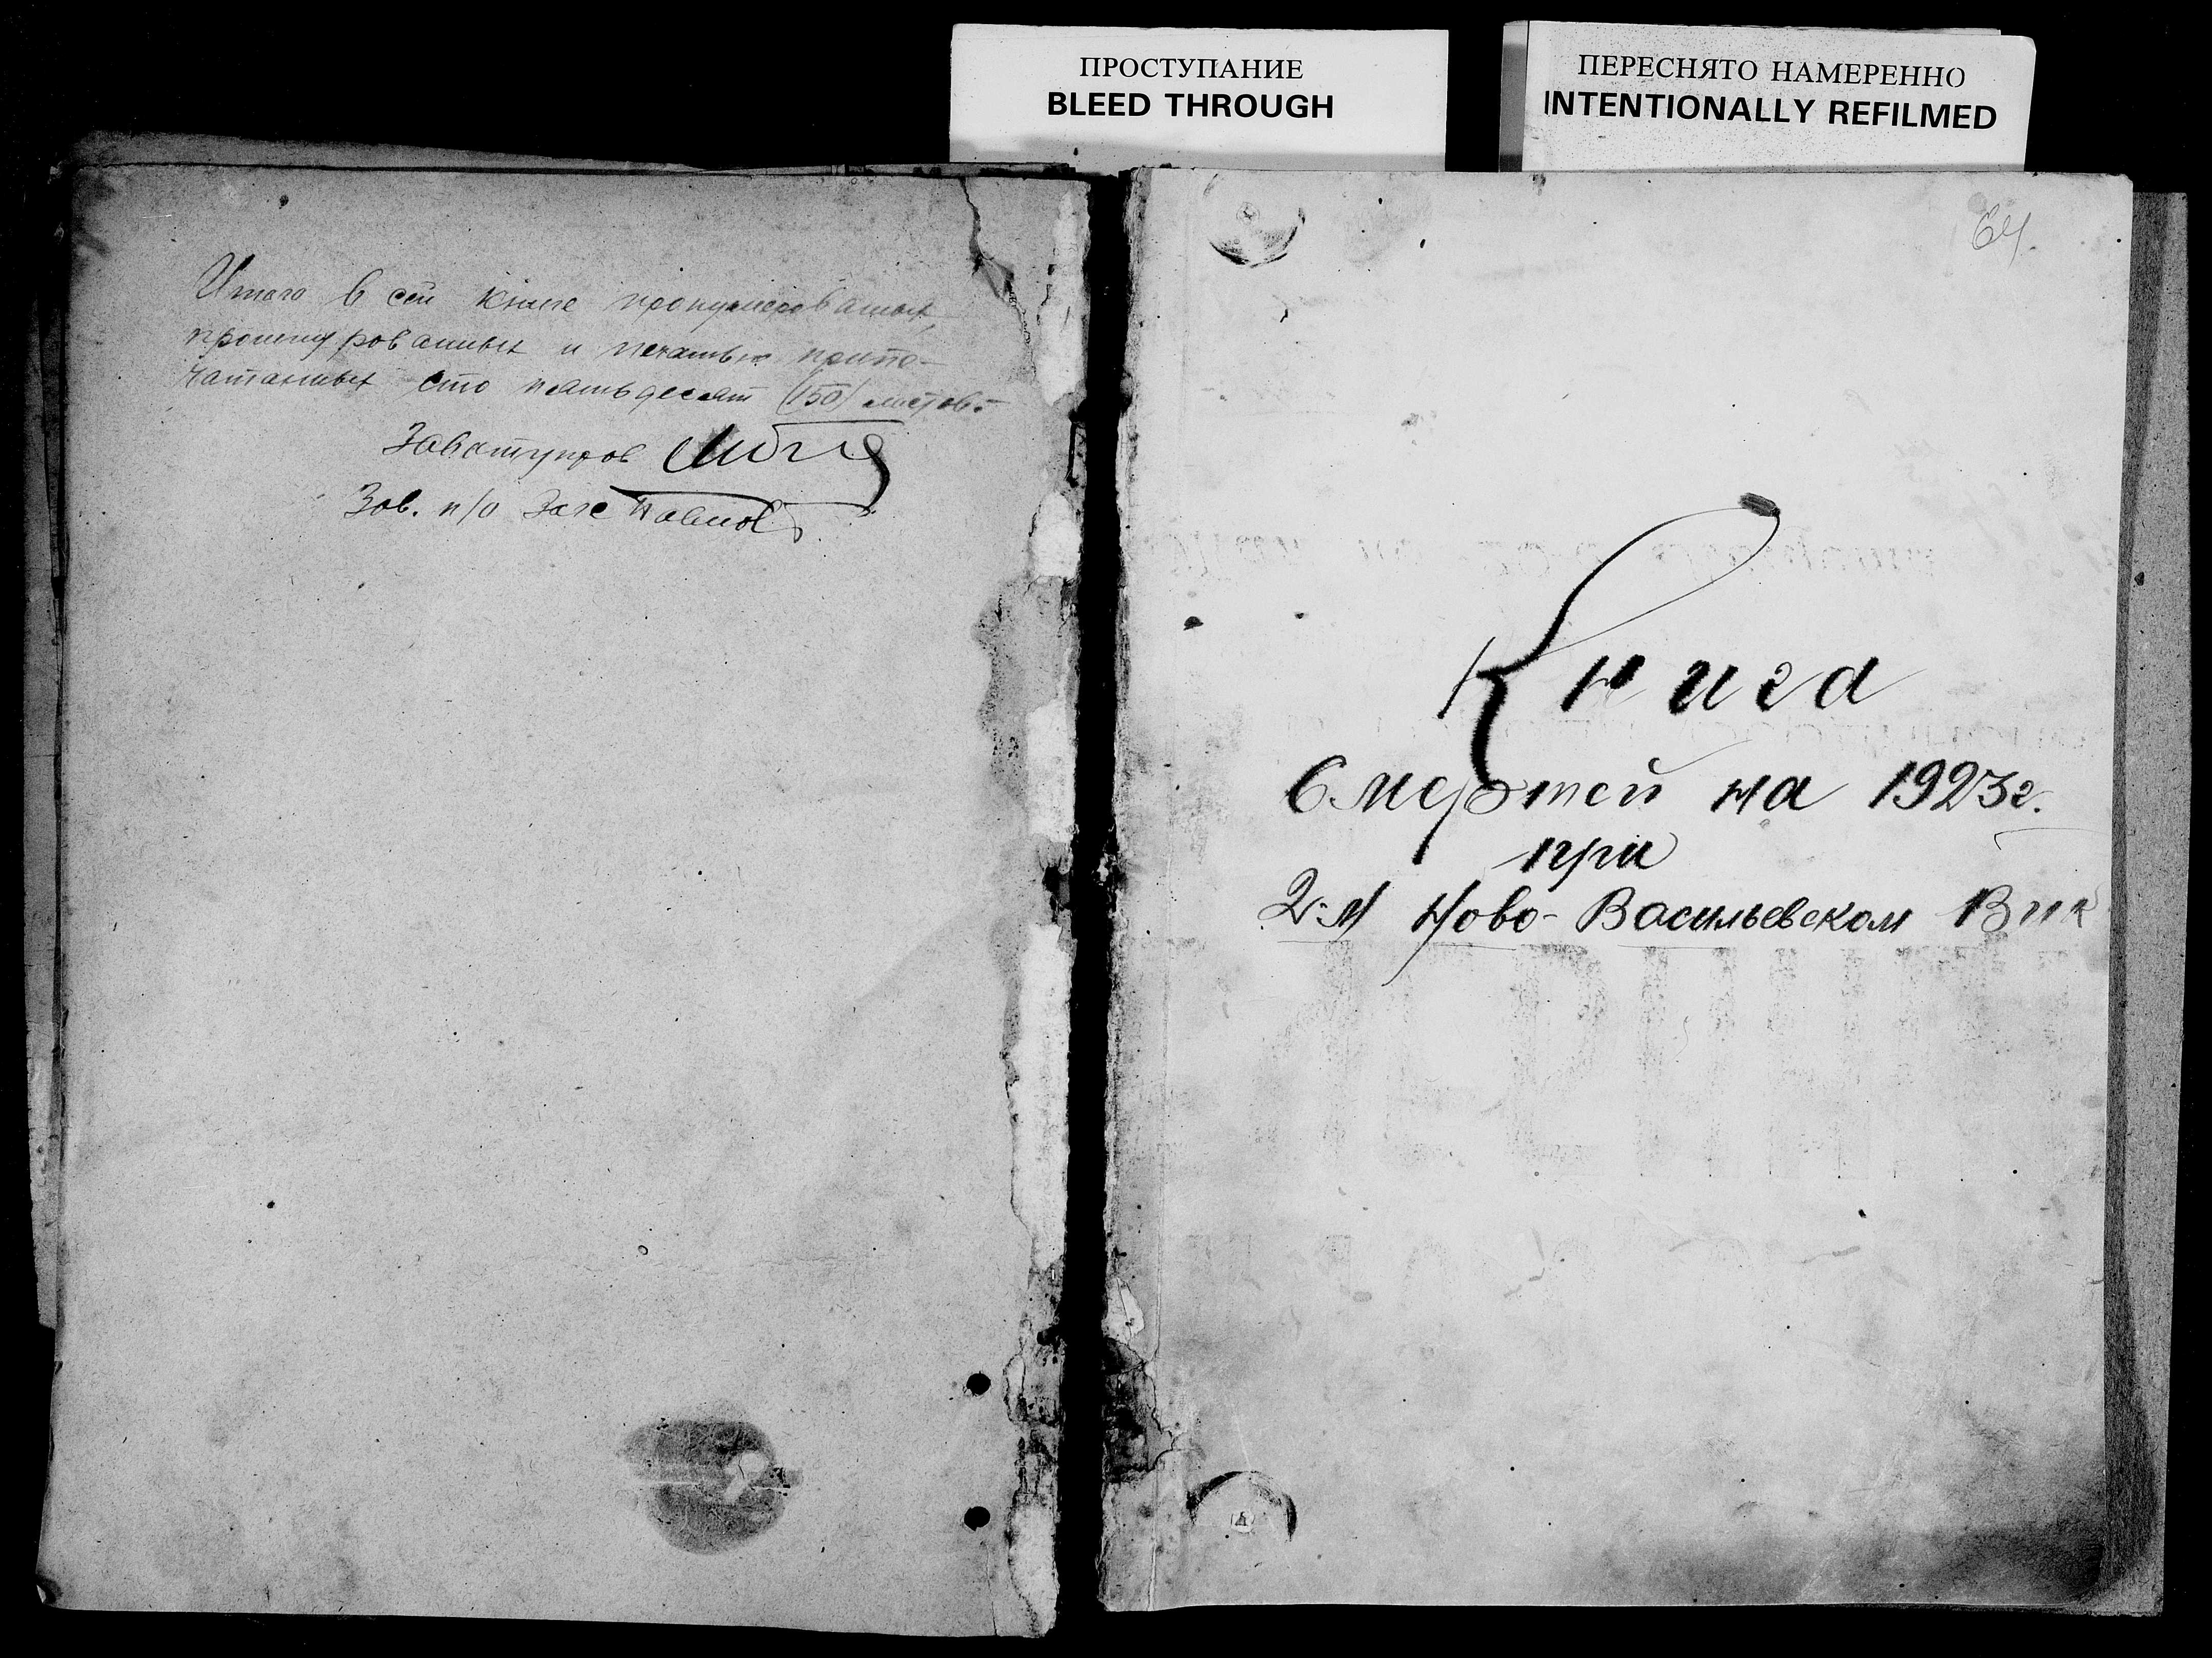 ПРОСТУПАНИЕ
BLEED THROUGH
ПЕРЕСНЯТО НАМЕРЕННО
INTENTIONALLY REFILMED
Итого в сей книге пронумерованых,
прошнурованных и печатью припе-
чатанных сто пятьдесят (150) листов.
Завотупров
Зав. п/о Загс Павлов
64.
Книга
Смертей на 1923г.
при
2-м Ново-Васильевском Вик